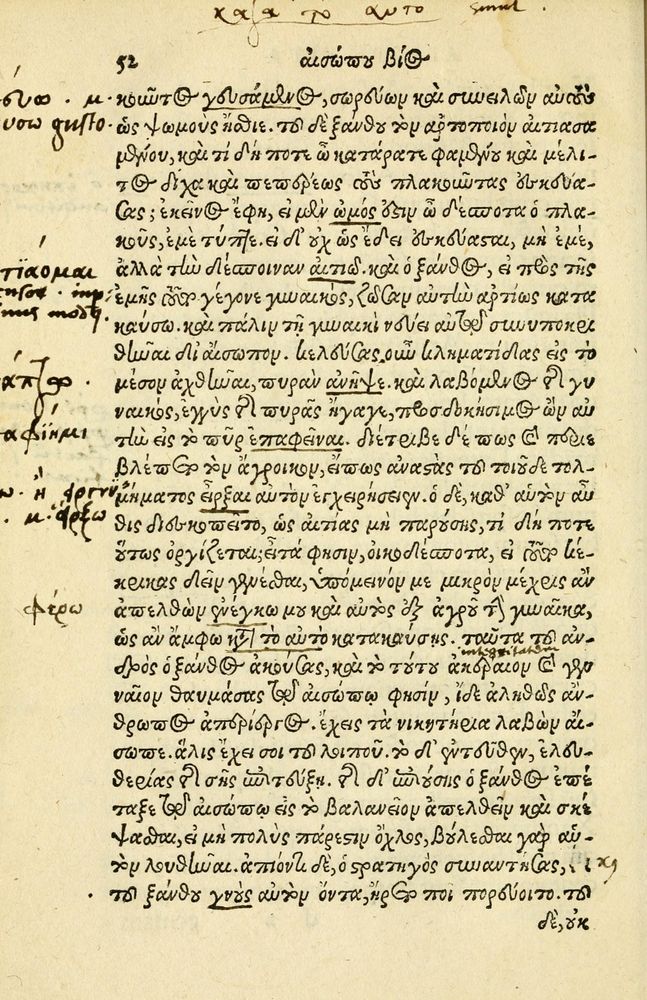 κατὰ τὸ αυτο simul.
52 ΑΙΣΩΠΟΥ ΒΙΟΣ
κοῦντος γευσάμενος, σωρεύων καὶ συνειλῶν αὐτοὺς
ὡς ψωμοὺς ἤσθιε. τοῦ δὲ ξάνθου τὸν ἀρτοποιὸν αἰτιασα
μένου, καὶ τί δή ποτε ὦ κατάρατε φαμένου καὶ μέλι-
τος δίχα καὶ πεπέρεως τοὺς πλακοῦντας ἐσκεύα-
σας; ἐκεῖνος ἔφη, εἰ μὲν ὠμός ἐστιν ὦ δέσποτα ὁ πλα-
κοῦς, ἐμὲ τύπτε. εἰ δ' οὐχ ὡς ἔδει ἐσκεύασται, μὴ ἐμέ,
ἀλλὰ τὴν δέσποιναν αἰτιῶ. καὶ ὁ ξάνθος, εἰ πρὸς τῆς
ἐμῆς τοῦτο γέγονε γυναικός, ζῶσαν αὐτὴν ἀρτίως κατα
καύσω. καὶ πάλιν τῇ γυναικὶ νεύει αὐτῷ συνυποκρι
θῆναι δι' αἴσωπον. κελεύσας οὖν κληματίδας εἰς τὸ
μέσον ἀχθῆναι, πυρὰν ἀνῆψε. καὶ λαβόμενος τῆς γυ
ναικός, ἐγγὺς τῆς πυρᾶς ἤγαγε, προσδοκήσιμος ὢν αὐ
τὴν εἰς τὸ πῦρ ἐπαφεῖναι. διέτριβε δέ πως καὶ περιέ
βλεπε τὸν ἄγροικον, εἴπως ἀναστὰς τοῦ τοιοῦδε τολ-
μήματος εἶρξαι αὐτὸν ἐγχειρήσειεν. ὁ δὲ, καθ' αὑτὸν αὖ
θις διεσκοπεῖτο, ὡς αἰτίας μὴ παρούσης, τί δή ποτε
οὕτως ὀργίζεται; εἶτά φησιν, οἰκοδέσποτα, εἰ τοῦτο κέ-
κρικας δεῖν γενέσθαι, ὑπόμεινόν με μικρὸν μέχρις ἂν
ἀπελθὼν ἐνέγκω μου καὶ αὐτὸς ἐξ ἀγροῦ τὴν γυναῖκα,
ὡς ἂν ἄμφω κατὰ τὸ αὐτὸ κατακαύσῃς. ταῦτα τοῦ ἀν-
integritatem
δρὸς ὁ ξάνθος ἀκούσας, καὶ τὸ τούτου ἀκέραιον καὶ γεν
ναῖον θαυμάσας τῷ αἰσώπῳ φησίν, ἴδε ἀληθῶς ἄν-
θρωπος ἀπερίεργος. ἔχεις τὰ νικητήρια λαβὼν αἴ-
σωπε. ἅλις ἔχει σοι τοῦ λοιποῦ. τὸ δ' ἐντεῦθεν, ἐλευ-
θερίας τῆς σῆς ἐπιτεύξῃ. τῇ δ' ἐπιούσῃ ὁ ξάνθος ἐπέ
ταξε τῷ αἰσώπῳ εἰς τὸ βαλανεῖον ἀπελθεῖν καὶ σκέ
ψασθαι, εἰ μὴ πολὺς πάρεστιν ὄχλος, βούλεσθαι γὰρ αὐ-
τὸν λουθῆναι. ἀπιόντι δὲ, ὁ στρατηγὸς συναντήσας,
τοῦ ξάνθου γνοὺς αὐτὸν ὄντα, ἤρετο ποῖ πορεύοιτο. τοῦ
δὲ, οὐκ
gusto
τιαομαι
αφίημι
ἄρξω
φέρω